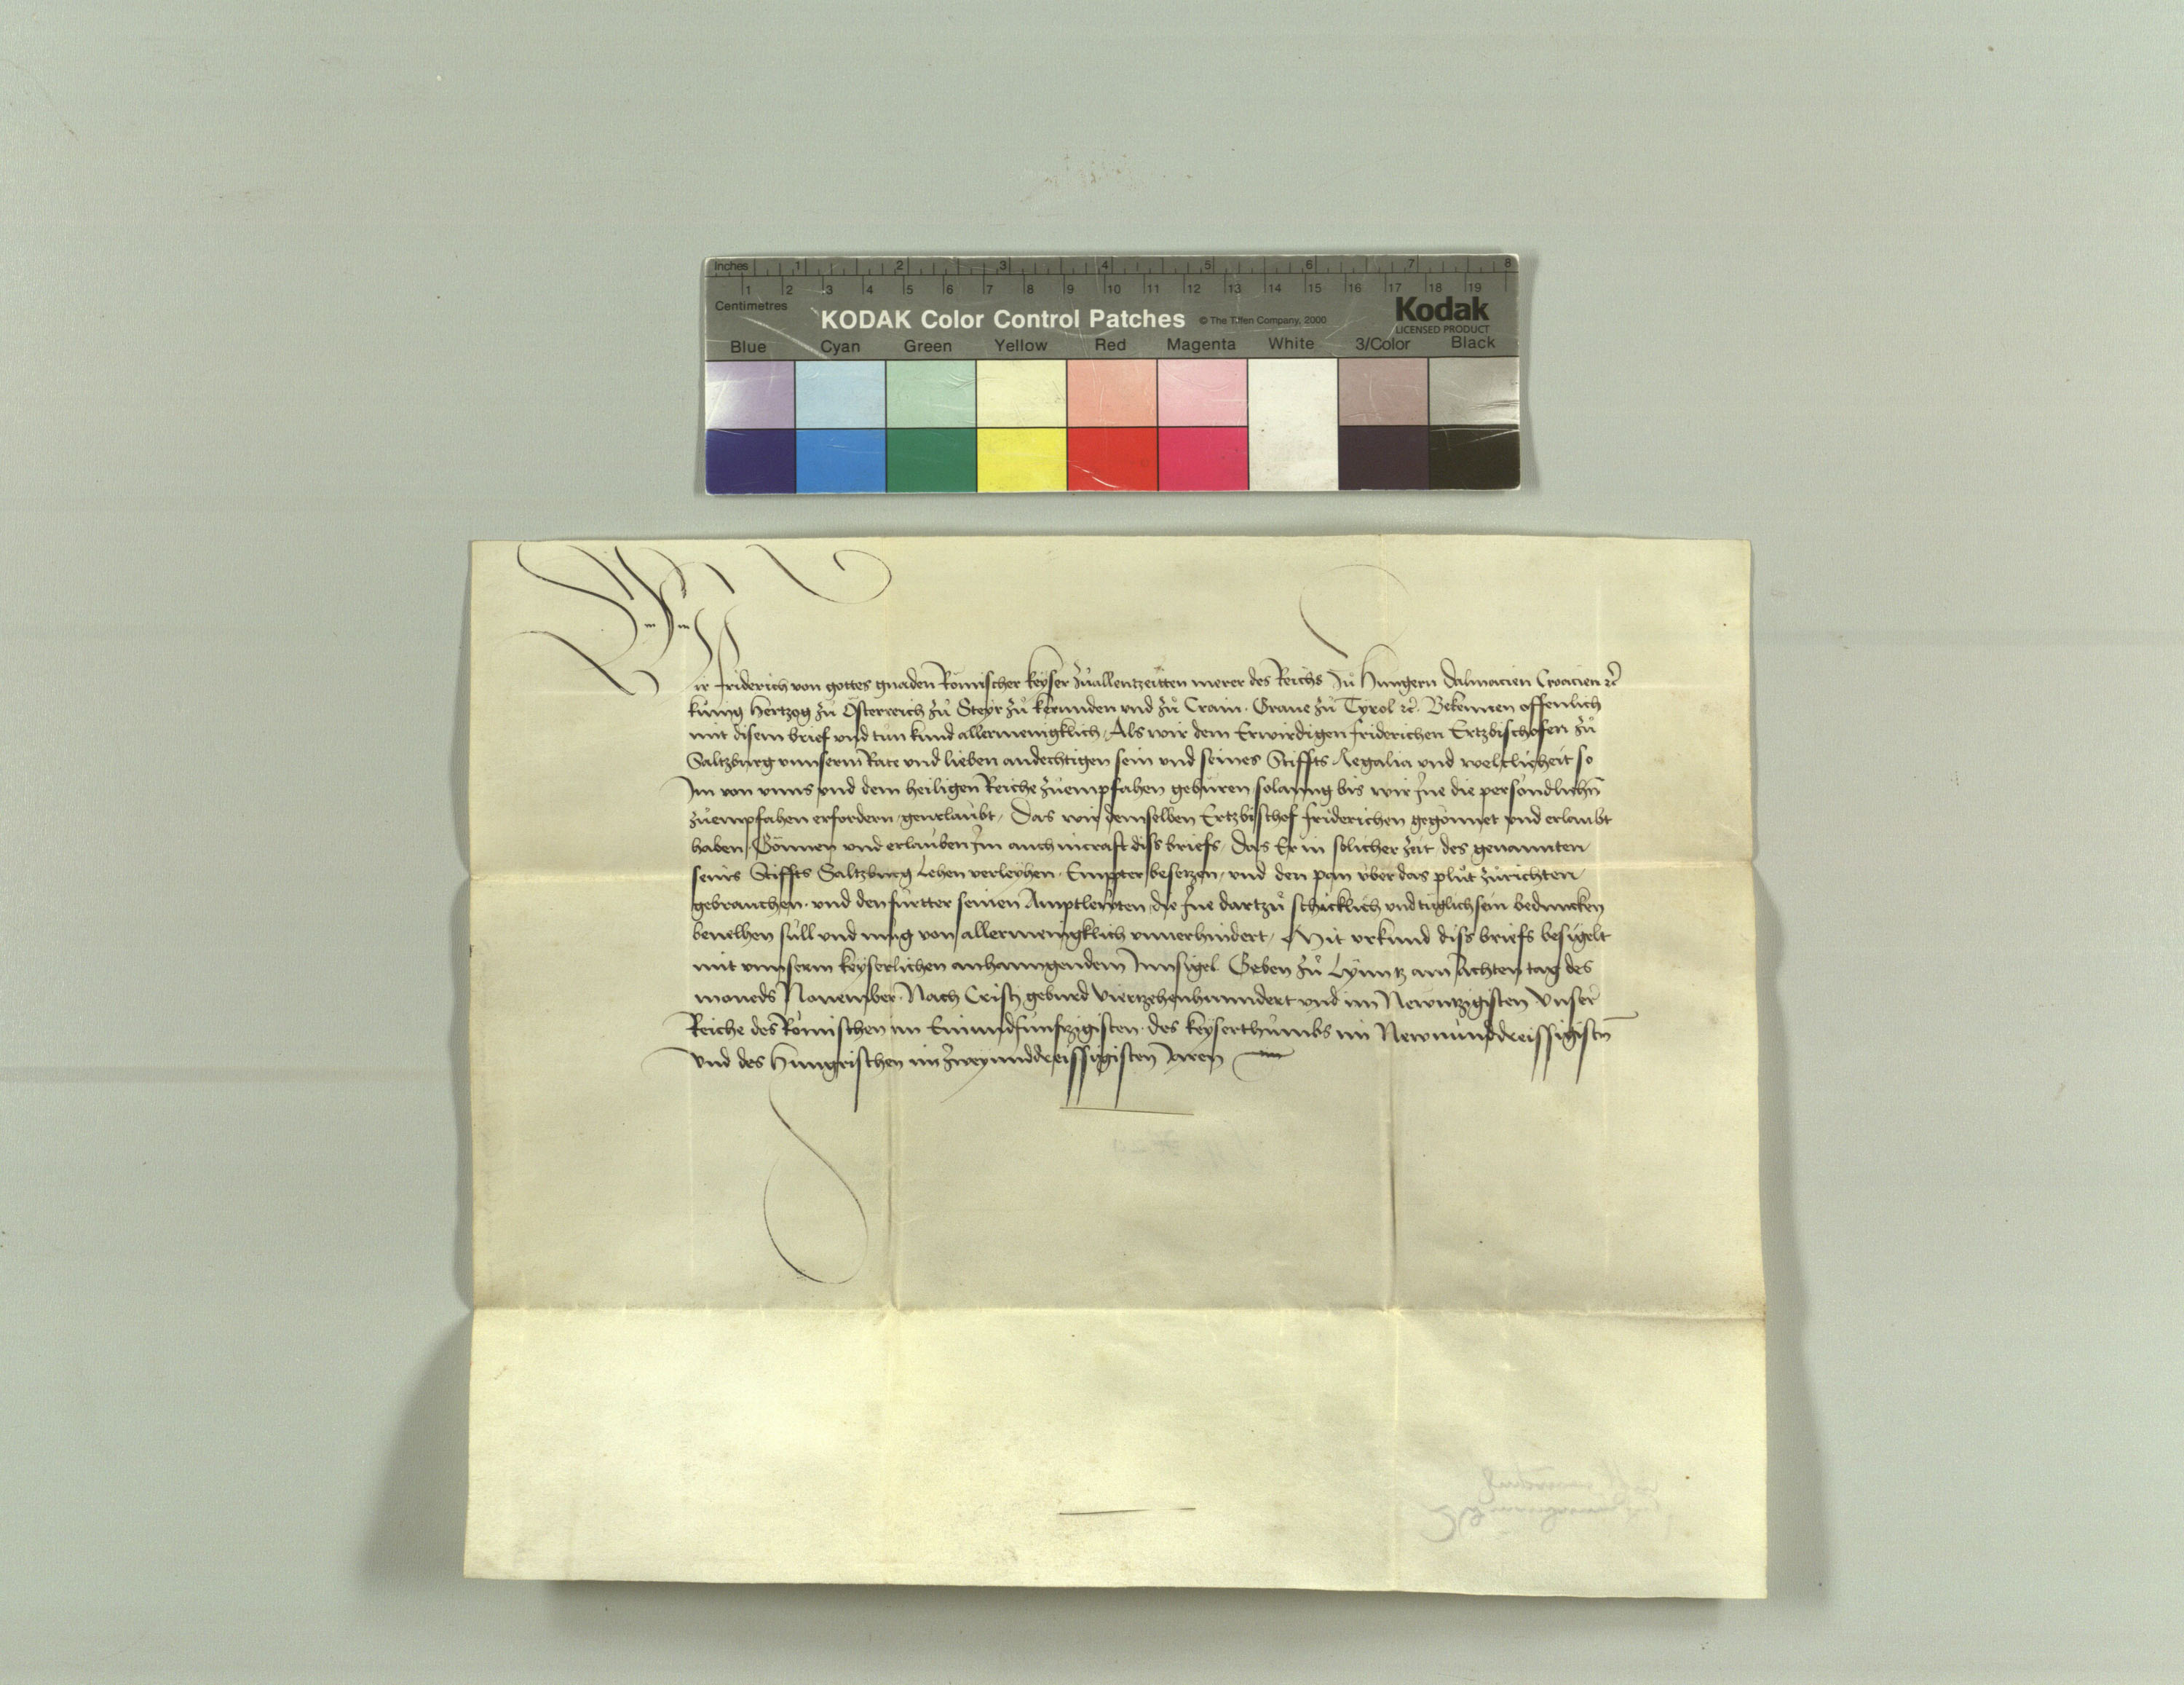 Inches 1 2 3 4 5 6 7 8
1 2 3 4 5 6 7 8 9 10 11 12 13 14 15 16 17 18 19
Centimetres
KODAK Color Control Patches © The Tiffen Company, 2000 Kodak
LICENSED PRODUCT
Blue Cyan Green Yellow Red Magenta White 3/Color Black
Wir Friderich von gottes gnaden Römischer keyser zuallenntzeitten merer des Reichs zů Hungern Dalmacien Croacien ꝛc̄
kůnig Hertzog zů Österreich zů Steyr zů kernnden vnd zů Crain. Graue zů Tyrol ꝛc̄. Bekennen offennlich
mit disem brief vnd tun kund allermenigklich, Als wir dem Erwirdigen Friderichen Ertzbischofen zů
Saltzburg vnnserm Rate vnd lieben andechtigen sein vnd seines Stiffts Regalia vnd weltlicheit so
Im von vnns vnd dem heiligen Reiche zůempfahen gebüren solanng bis wir Ine die persondlichn̄
zůempfahen erfordern, geurlaubt, Das wir demselben Ertzbischof Friderichen gegönnet vnd erlaubt
haben, Gönnen vnd erlauben Im auch incraft diss briefs, Das Er in solicher zeit des genannten
seins Stiffts Saltzburg Lehen verleyhen, Empter besetzen, vnd den pan vber das plůt zůrichten
gebrauchen, vnd den fürtter seinen Amptlewten die Ine dartzů schicklich vnd tüglich sein beduncken
beuelhen süll vnd müg von allermenigklich vnuerhindert, Mit vrkund diss briefs besigelt
mit vnnserm keyserlichen anhanngendem Innsigel. Geben zů Lynntz am Achten tag des
moneds Nouember. Nach Cristi geburd viertzehenhundert vnd im Newntzigisten Vnser
Reiche des Römischen im Einundfunfzigisten. des keyserthumbs im Newnunddreissigistn̄
vnd des Hungrischen im zweyunddreissigisten Jaren